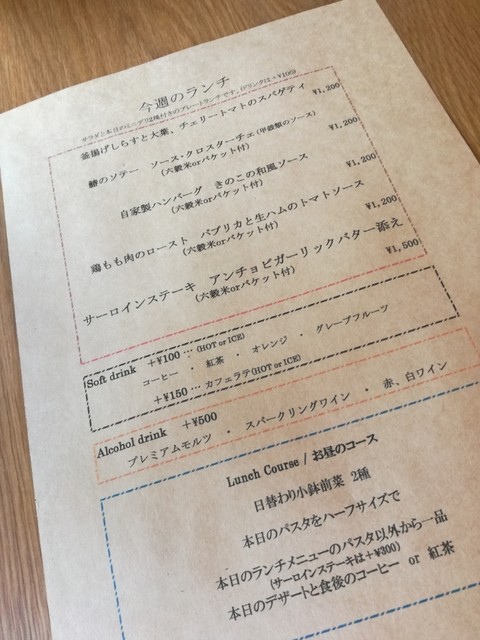 今週のランチ
サラダと本日のミニデリ2種付きのプレートランチです。(ドリンクは+¥100)
釜揚げしらすと大葉、チェリートマトのスパゲティ ¥1,200
鰆のソテー ソース・クロスターチェ(甲殻類のソース) ¥1,200
(六穀米orバケット付)
自家製ハンバーグ きのこの和風ソース ¥1,200
(六穀米orバケット付)
鶏もも肉のロースト パプリカと生ハムのトマトソース ¥1,200
(六穀米orバケット付)
サーロインステーキ アンチョビガーリックバター添え ¥1,500
(六穀米orバケット付)
Soft drink +¥100 … (HOT or ICE)
コーヒー ・ 紅茶 ・ オレンジ ・ グレープフルーツ
+¥150 … カフェラテ(HOT or ICE)
Alcohol drink +¥500
プレミアムモルツ ・ スパークリングワイン ・ 赤、白ワイン
Lunch Course / お昼のコース
日替わり小鉢前菜 2種
本日のパスタをハーフサイズで
本日のランチメニューのパスタ以外から一品
(サーロインステーキは+¥300)
本日のデザートと食後のコーヒー or 紅茶